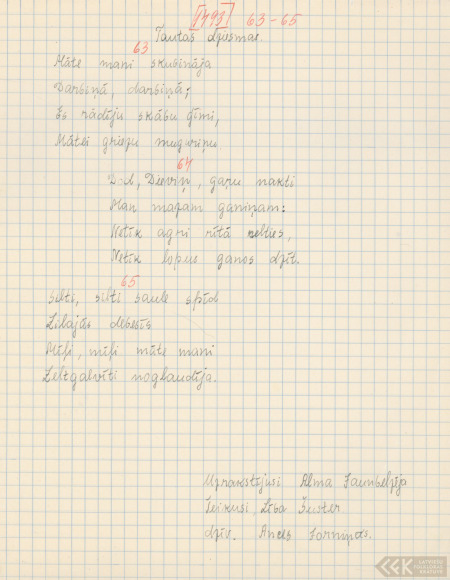 [1493] 63-65
Tautas dziesmas.
63
Māte mani skubināja
Darbiņā, darbiņā;
Es rādīju skābu ģīmi,
Mātei griežu muguriņu
64
Dod, Dieviņ, gaŗu nakti
Man mazam ganiņam:
Netīk agri rītā celties,
Netīk lopus ganos dzīt.
65
Silti, silti saule spīd
Zilajās debesīs
Mīļi, mīļi māte mani
Zeltgalvīti noglaudīja.
Uzrakstījusi Alma Jaunbelzēja
Teikusi Lība Šuster
dzīv. Ances